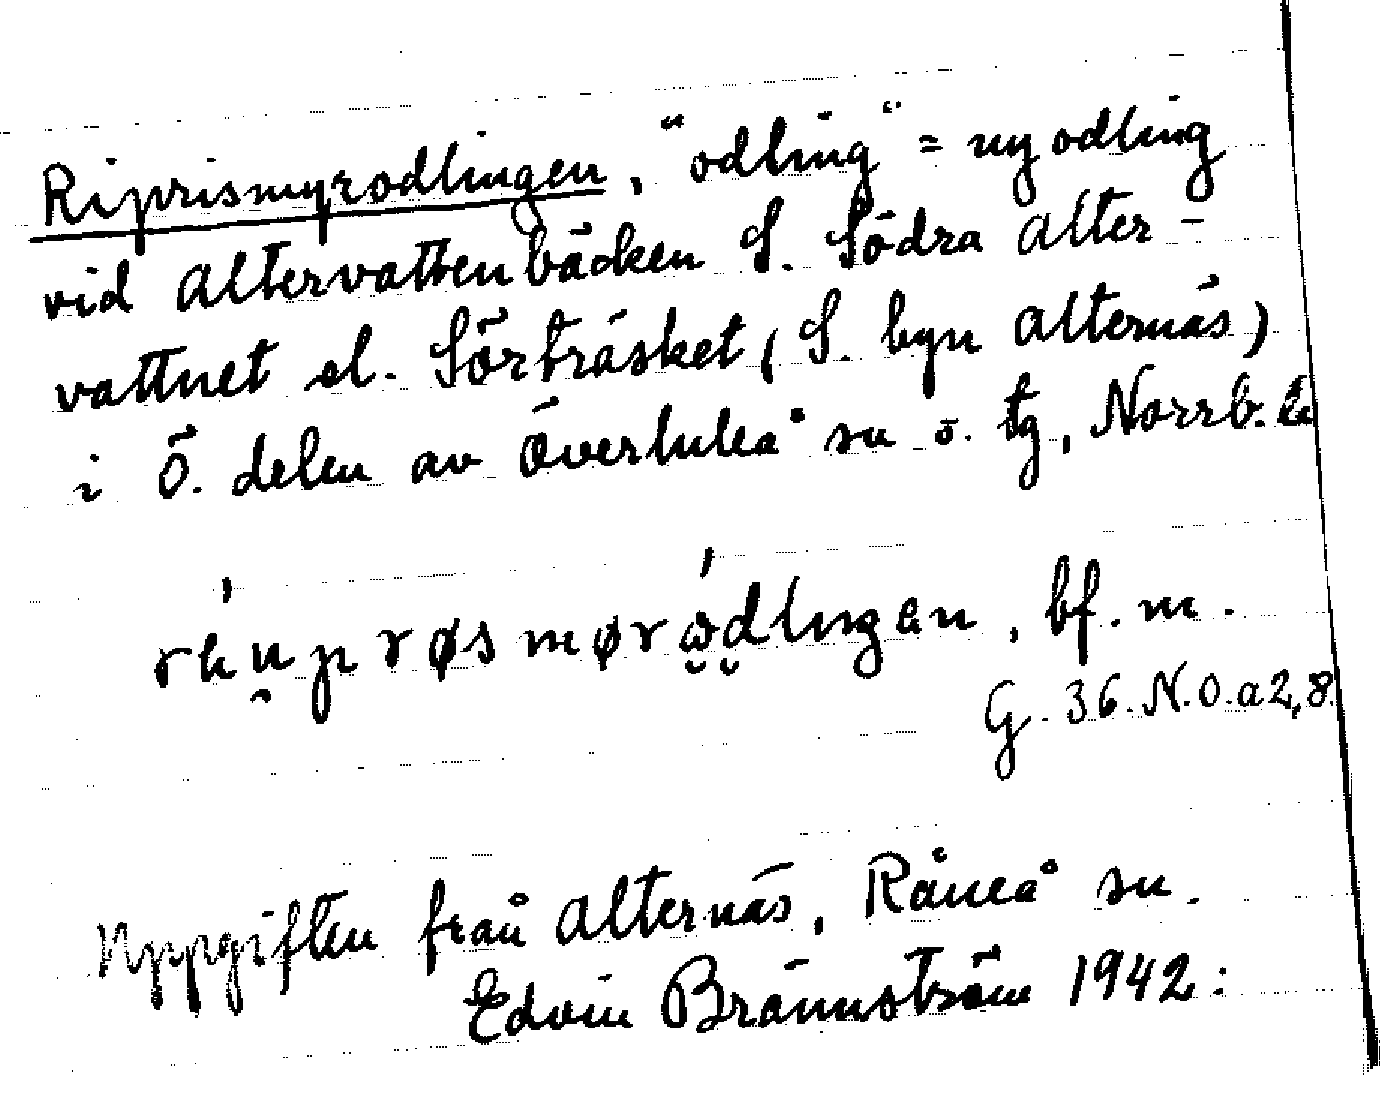 Riprismyrodlingen, "odling" = nyodling
vid Altervattenbäcken S. Södra Alter-
vattnet el. Sörträsket (S. byn Alternäs)
i Ö. delen av Överluleå sn o. tg, Norrb. la
bf. m.
G. 36. N.O. a 2,8.
Uppgiften från Alternäs, Råneå sn.
Edvin Brännström 1942: